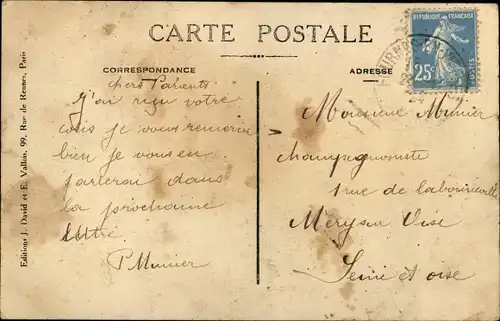 CARTE POSTALE
REPUBLIQUE FRANÇAISE
25c
POSTES
CORRESPONDANCE
ADRESSE
chers Parents
J'ai reçu votre
colis je vous remercie
bien je vous en
parlerai dans
la prochaine
lettre
P Munier
Monsieur Munier
champignoniste
1 rue de
Mery sur Oise
Seine et oise
Editions J. David et E. Vallois, 99, Rue de Rennes, Paris